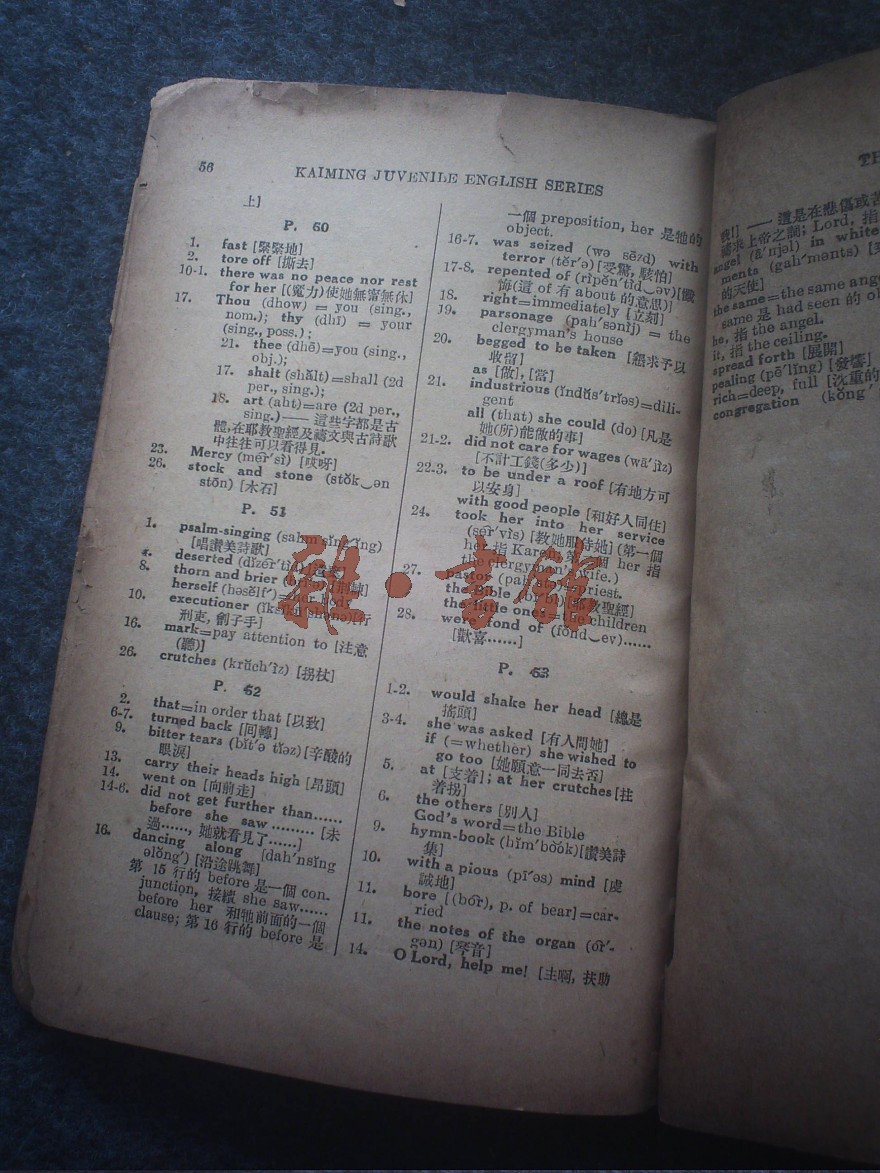 56
KAIMING JUVENILE ENGLISH SERIES
上]
P. 50
1. fast [緊緊地]
2. tore off [撕去]
10-1. there was no peace nor rest
for her [(魔力)使她無甯無休]
17. Thou (dhow) = you (sing.,
nom.); thy (dhī) = your
(sing., poss.);
21. thee (dhē)=you (sing.,
obj.);
17. shalt (shălt)=shall (2d
per., sing.);
18. art (aht)=are (2d per.,
sing.)——這些字都是古
體,在耶教聖經及禱文與古詩歌
中往往可以看得見.
23. Mercy (mẽr'sĭ) [哎呀]
26. stock and stone (stŏk‿ən
stōn) [木石]
P. 51
1. psalm-singing (sahm'sĭng'ĭng)
[唱讚美詩歌]
deserted
8. thorn and brier
herself (həsĕlf')
10. executioner [行
刑吏, 劊子手]
16. mark=pay attention to [注意
(聽)]
26. crutches (krŭch'ĭz) [拐杖]
P. 52
2. that=in order that [以致]
6-7. turned back [回轉]
9. bitter tears (bĭt'ə tĭəz) [辛酸的
眼淚]
13. carry their heads high [昂頭]
14. went on [向前走]
14-6. did not get further than......
before she saw ......... [未
過......, 她就看見了......]
16. dancing along [dah'nsĭng
əlŏng') [沿途跳舞]
第 15 行的 before 是一個 con-
junction, 接續 she saw......
before her 和牠前面的一個
clause; 第 16 行的 before 是
一個 preposition, her 是牠的
object.
16-7. was seized (wə sēzd) with
terror (tĕr'ə) [受驚, 駭怕]
17-8. repented of (rĭpĕn'tĭd‿əv) [懺
悔(這 of 有 about 的意思)]
18. right=immediately [立刻]
19. parsonage (pah'sənĭj) = the
clergyman's house
20. begged to be taken [懇求予以
收留]
as [做], [當]
21. industrious (ĭndŭs'trĭəs)=dili-
gent
all (that) she could (do) [凡是
她(所)能做的事]
21-2. did not care for wages (wā'jĭz)
[不計工錢(多少)]
22-3. to be under a roof [有地方可
以安身]
with good people [和好人同住]
24. took her into her service
(sẽr'vĭs) [教她服侍她] (第一個
her 指 Karen, 第 個 her 指
the clergyman's wife.)
27. pastor priest.
the Bible [耶教聖經]
the little ones=the children
28. were fond of (fŏnd‿əv)......
[歡喜......]
P. 53
1-2. would shake her head [總是
搖頭]
3-4. she was asked [有人問她]
if (=whether) she wished to
go too [她願意一同去否]
5. at [支着]; at her crutches [拄
着拐]
6. the others [別人]
God's word=the Bible
9. hymn-book (hĭm'bo͝ok) [讚美詩
集]
10. with a pious (pī'əs) mind [虔
誠地]
11. bore [(bôr), p. of bear]=car-
ried
11. the notes of the organ (ôr'-
gən) [琴音]
14. O Lord, help me! [主啊, 扶助
TH
我!] —— 這是在悲傷或苦
籲求上帝之詞; Lord, 指
angel (ā'njəl) in white
ments (gah'mənts)
的天使]
the same=the same ange
same 是 had seen 的 ob
he, 指 the angel.
it, 指 the ceiling.
spread forth [展開]
pealing (pē'lĭng) [發響]
rich=deep, full [沈重的
congregation (kŏng'
雜·書館